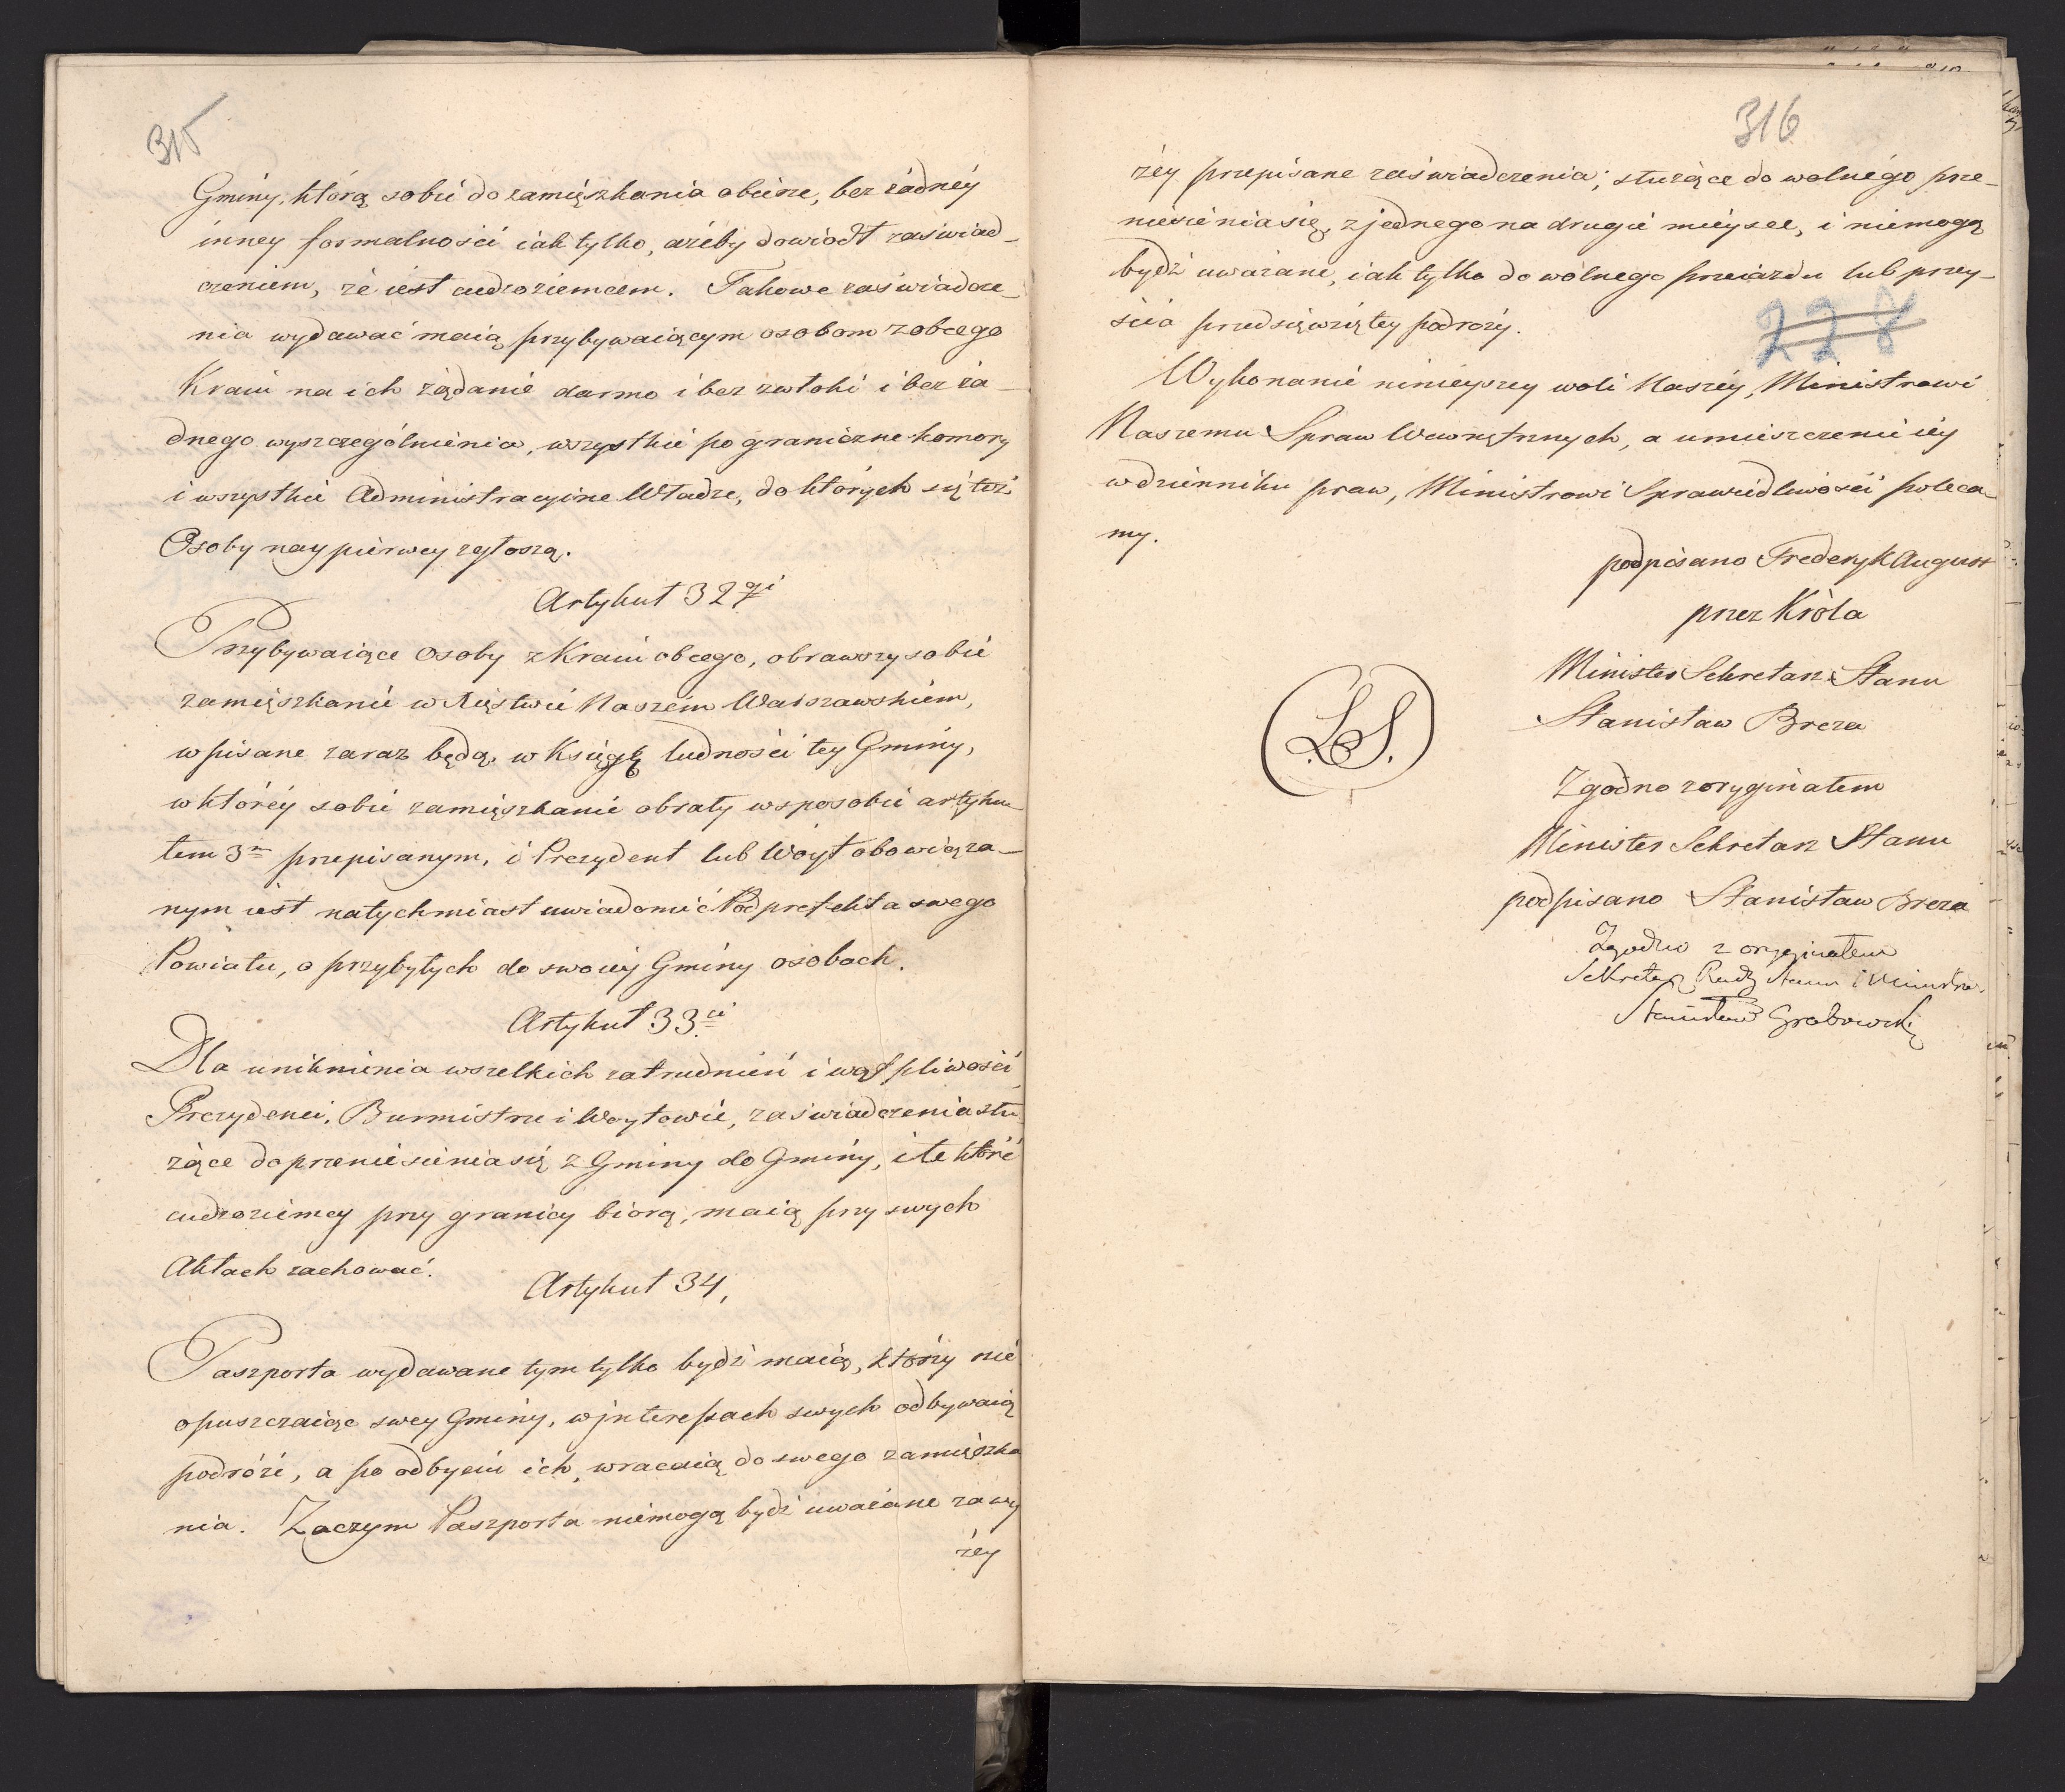 315
Gminy, którą sobie do zamięszkania obierze, bez żadney
inney formalności iak tylko, ażeby dowiodł zaświad-
czeniem, że iest cudzoziemcem. Takowe zaświadcze-
nia wydawać maią przybywaiącym osobom z obcego
Kraiu na ich żądanie darmo i bez zwłoki i bez ża-
dnego wyszczególnienia, wszystkie pograniczne komory
i wszystkie Administracyine Władze, do których się też
Osoby naypierwey zgłoszą.
Artykuł 32gi
Przybywaiące osoby z Kraiu obcego, obrawszy sobie
zamięszkanie w Xięstwie Naszém Warszawskiém,
wpisane zaraz będą, w Księgę ludności tey Gminy,
w któréy sobie zamięszkanie obrały w sposobie artyku-
łem 3m przepisanym, i Prezydent lub Wóyt obowiąza-
nym iest natychmiast uwiadomić Podprefekta swego
Powiatu, o przybyłych do swoiéy Gminy osobach.
Artykuł 33ci
Dla uniknienia wszelkich zatrudnień i wątpliwości
Prezydenci, Burmistrze i Woytowie, zaświadczenia słu-
żące do przeniesienia się z Gminy do Gminy, i te które
cudzoziemcy przy granicy biorą, maią przy swych
Aktach zachować.
Artykuł 34,
Paszporta wydawane tym tylko bydź maią, którzy nie
opuszczaiąc swey Gminy, w jnteressach swych odbywaią
podróże, a po odbyciu ich, wracaią do swego zamięszka
nia. Zaczym Paszporta niemogą bydź uważane za wy
żéy
316
żéy przepisane zaświadczenia, służące do wolnégo prze-
niesienia się, z jednego na drugie mieysce, i niemogą
bydź uważane, iak tylko do wolnego przeiazdu lub przey-
ścia przedsięwziętey podroży.
228
Wykonanie ninieyszey woli Naszéy, Ministrowi
Naszemu Spraw Wewnętrznych, a umieszczenie iéy
w dzienniku praw, Ministrowi Sprawiedliwości poleca-
my.
podpisano Frederyk August
przez Króla
Minister Sekretarz Stanu
Stanisław Breza
L.S.
Zgodno z oryginałem
Minister Sekretarz Stanu
podpisano Stanisław Breza
Zgodno z oryginałem
Sekretarz Rady Stanu i Ministrów.
Stanisław Grabowski